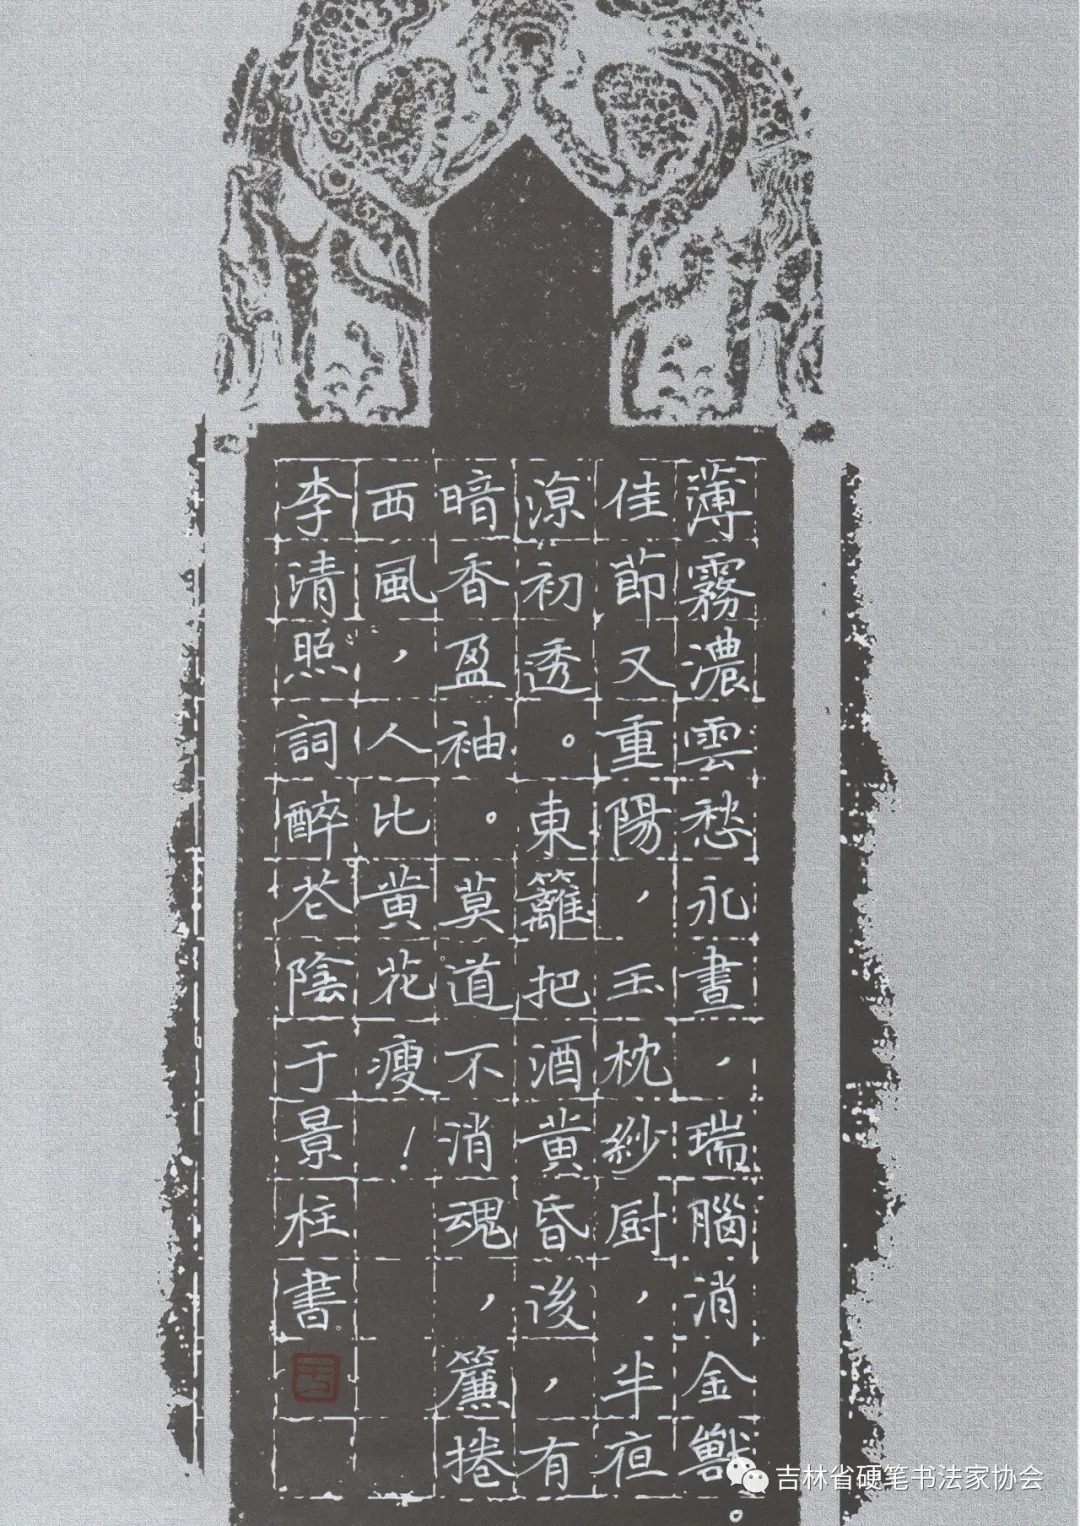 薄霧濃雲愁永晝，瑞腦消金獸。
佳節又重陽，玉枕紗厨，半夜
涼初透。東籬把酒黄昏後，有
暗香盈袖。莫道不消魂，簾捲
西風，人比黄花瘦！
李清照詞醉花陰于景柱書
吉林省硬笔书法家协会